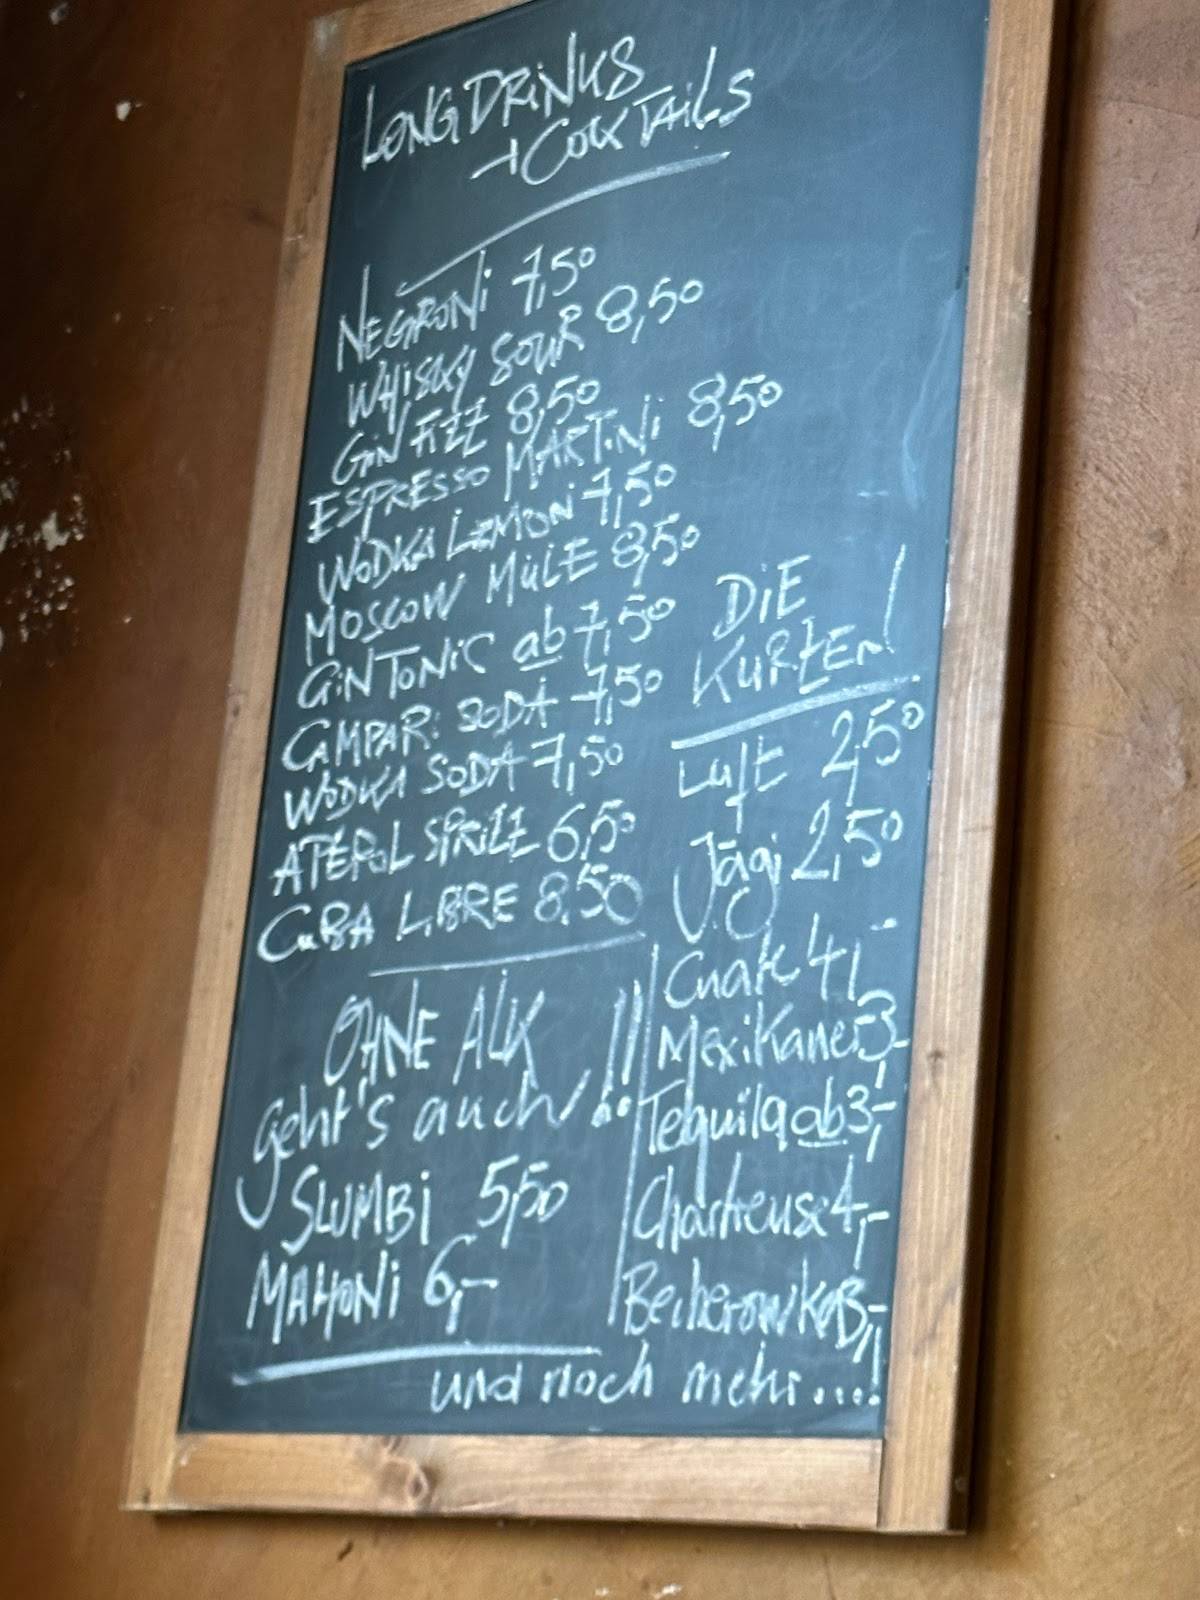 LONGDRINKS
+ COCKTAILS
NEGRONI 7,50
WHISKY SOUR 8,50
GIN FIZZ 8,50
ESPRESSO MARTINI 8,50
WODKA LEMON 7,50
MOSCOW MULE 8,50
GIN TONIC ab 7,50
CAMPARI SODA 7,50
WODKA SODA 7,50
APEROL SPRIZZ 6,50
CUBA LIBRE 8,50
OHNE ALK
geht's auch!!
SLUMBI 5,50
MAHONI 6,-
DIE
KURZEN!
Luft 2,50
Jägi 2,50
4,-
Mexikaner 3,-
Tequila ab 3,-
Chartreuse 4,-
Becherowka 3,-
und noch mehr...!